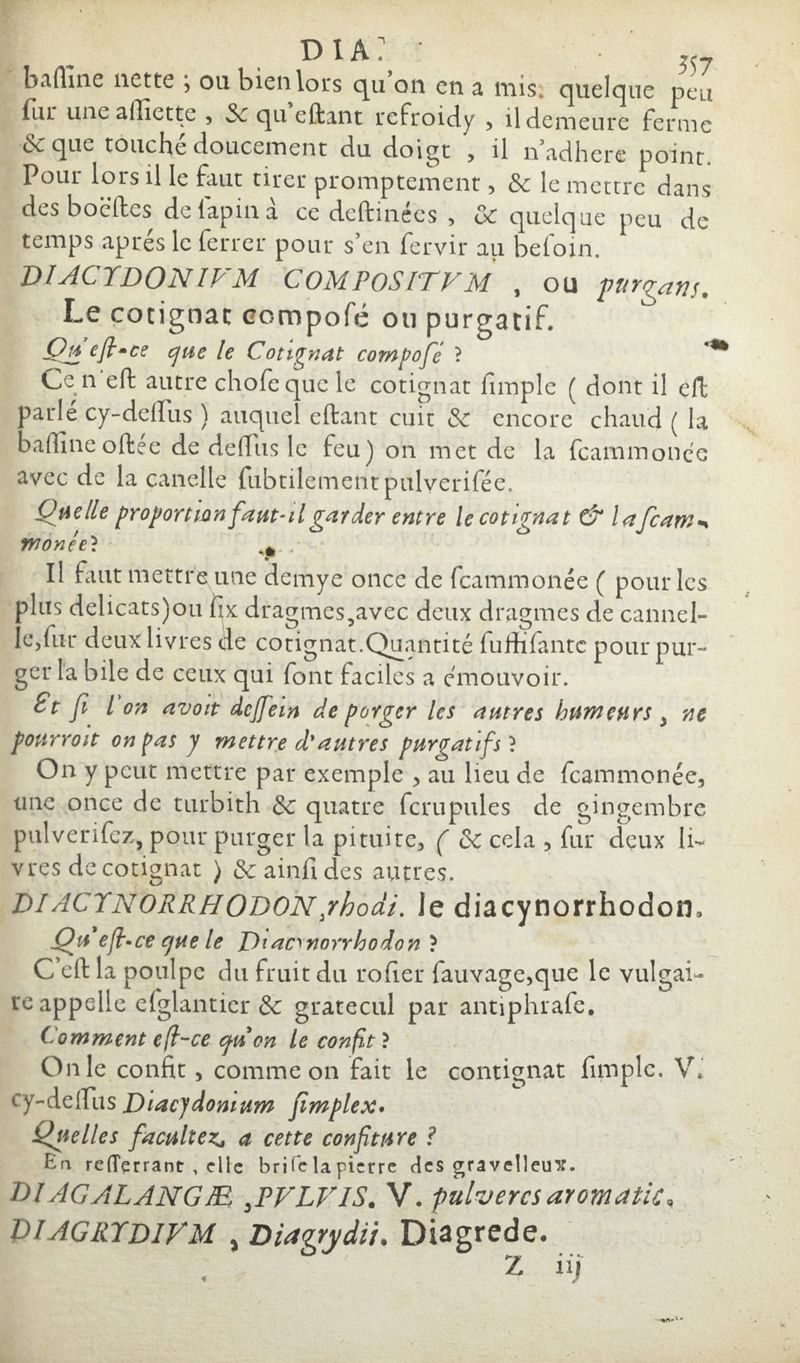 DIA. 357
baſſine nette ; ou bien lors qu'on en a mis. quelque peu
ſur une aſſiette , & qu'eſtant refroidy , il demeure ferme
& que touché doucement du doigt , il n'adhere point.
Pour lors il le faut tirer promptement , & le mettre dans
des boëſtes de ſapin à ce deſtinées , & quelque peu de
temps aprés le ſerrer pour s'en ſervir au beſoin.
DIACYDONIVM COMPOSITVM , ou purgans.
Le cotignat compoſé ou purgatif.
Qu'eſt-ce que le Cotignat compoſé ?
Ce n'eſt autre choſe que le cotignat ſimple ( dont il eſt
parlé cy-deſſus ) auquel eſtant cuit & encore chaud ( la
baſſine oſtée de deſſus le feu) on met de la ſcammonée
avec de la canelle ſubtilement pulveriſée.
Quelle proportion faut-il garder entre le cotignat & la ſcam-
monée?
Il faut mettre une demye once de ſcammonée ( pour les
plus delicats)ou ſix dragmes,avec deux dragmes de cannel-
le,ſur deux livres de cotignat.Quantité ſuffiſante pour pur-
ger la bile de ceux qui ſont faciles a émouvoir.
Et ſi l'on avoit deſſein de porger les autres humeurs , ne
pourroit on pas y mettre d'autres purgatifs ?
On y peut mettre par exemple , au lieu de ſcammonée,
une once de turbith & quatre ſcrupules de gingembre
pulveriſez, pour purger la pituite, ( & cela , ſur deux li-
vres de cotignat ) & ainſi des autres.
DIACYNORRHODON,rhodi. le diacynorrhodon.
Qu'eſt-ce que le Diacynorrhodon ?
C'eſt la poulpe du fruit du roſier ſauvage,que le vulgai-
re appelle eſglantier & gratecul par antiphraſe.
Comment eſt-ce qu'on le confit ?
On le confit , comme on fait le contignat ſimple. V.
cy-deſſus Diacydonium ſimplex.
Quelles facultez a cette confiture ?
En reſſerrant , elle briſe la pierre des gravelleux.
DIAGALANGÆ ,PVLVIS. V. pulveres aromatic.
DIAGRYDIVM , Diagrydii. Diagrede.
Z iij